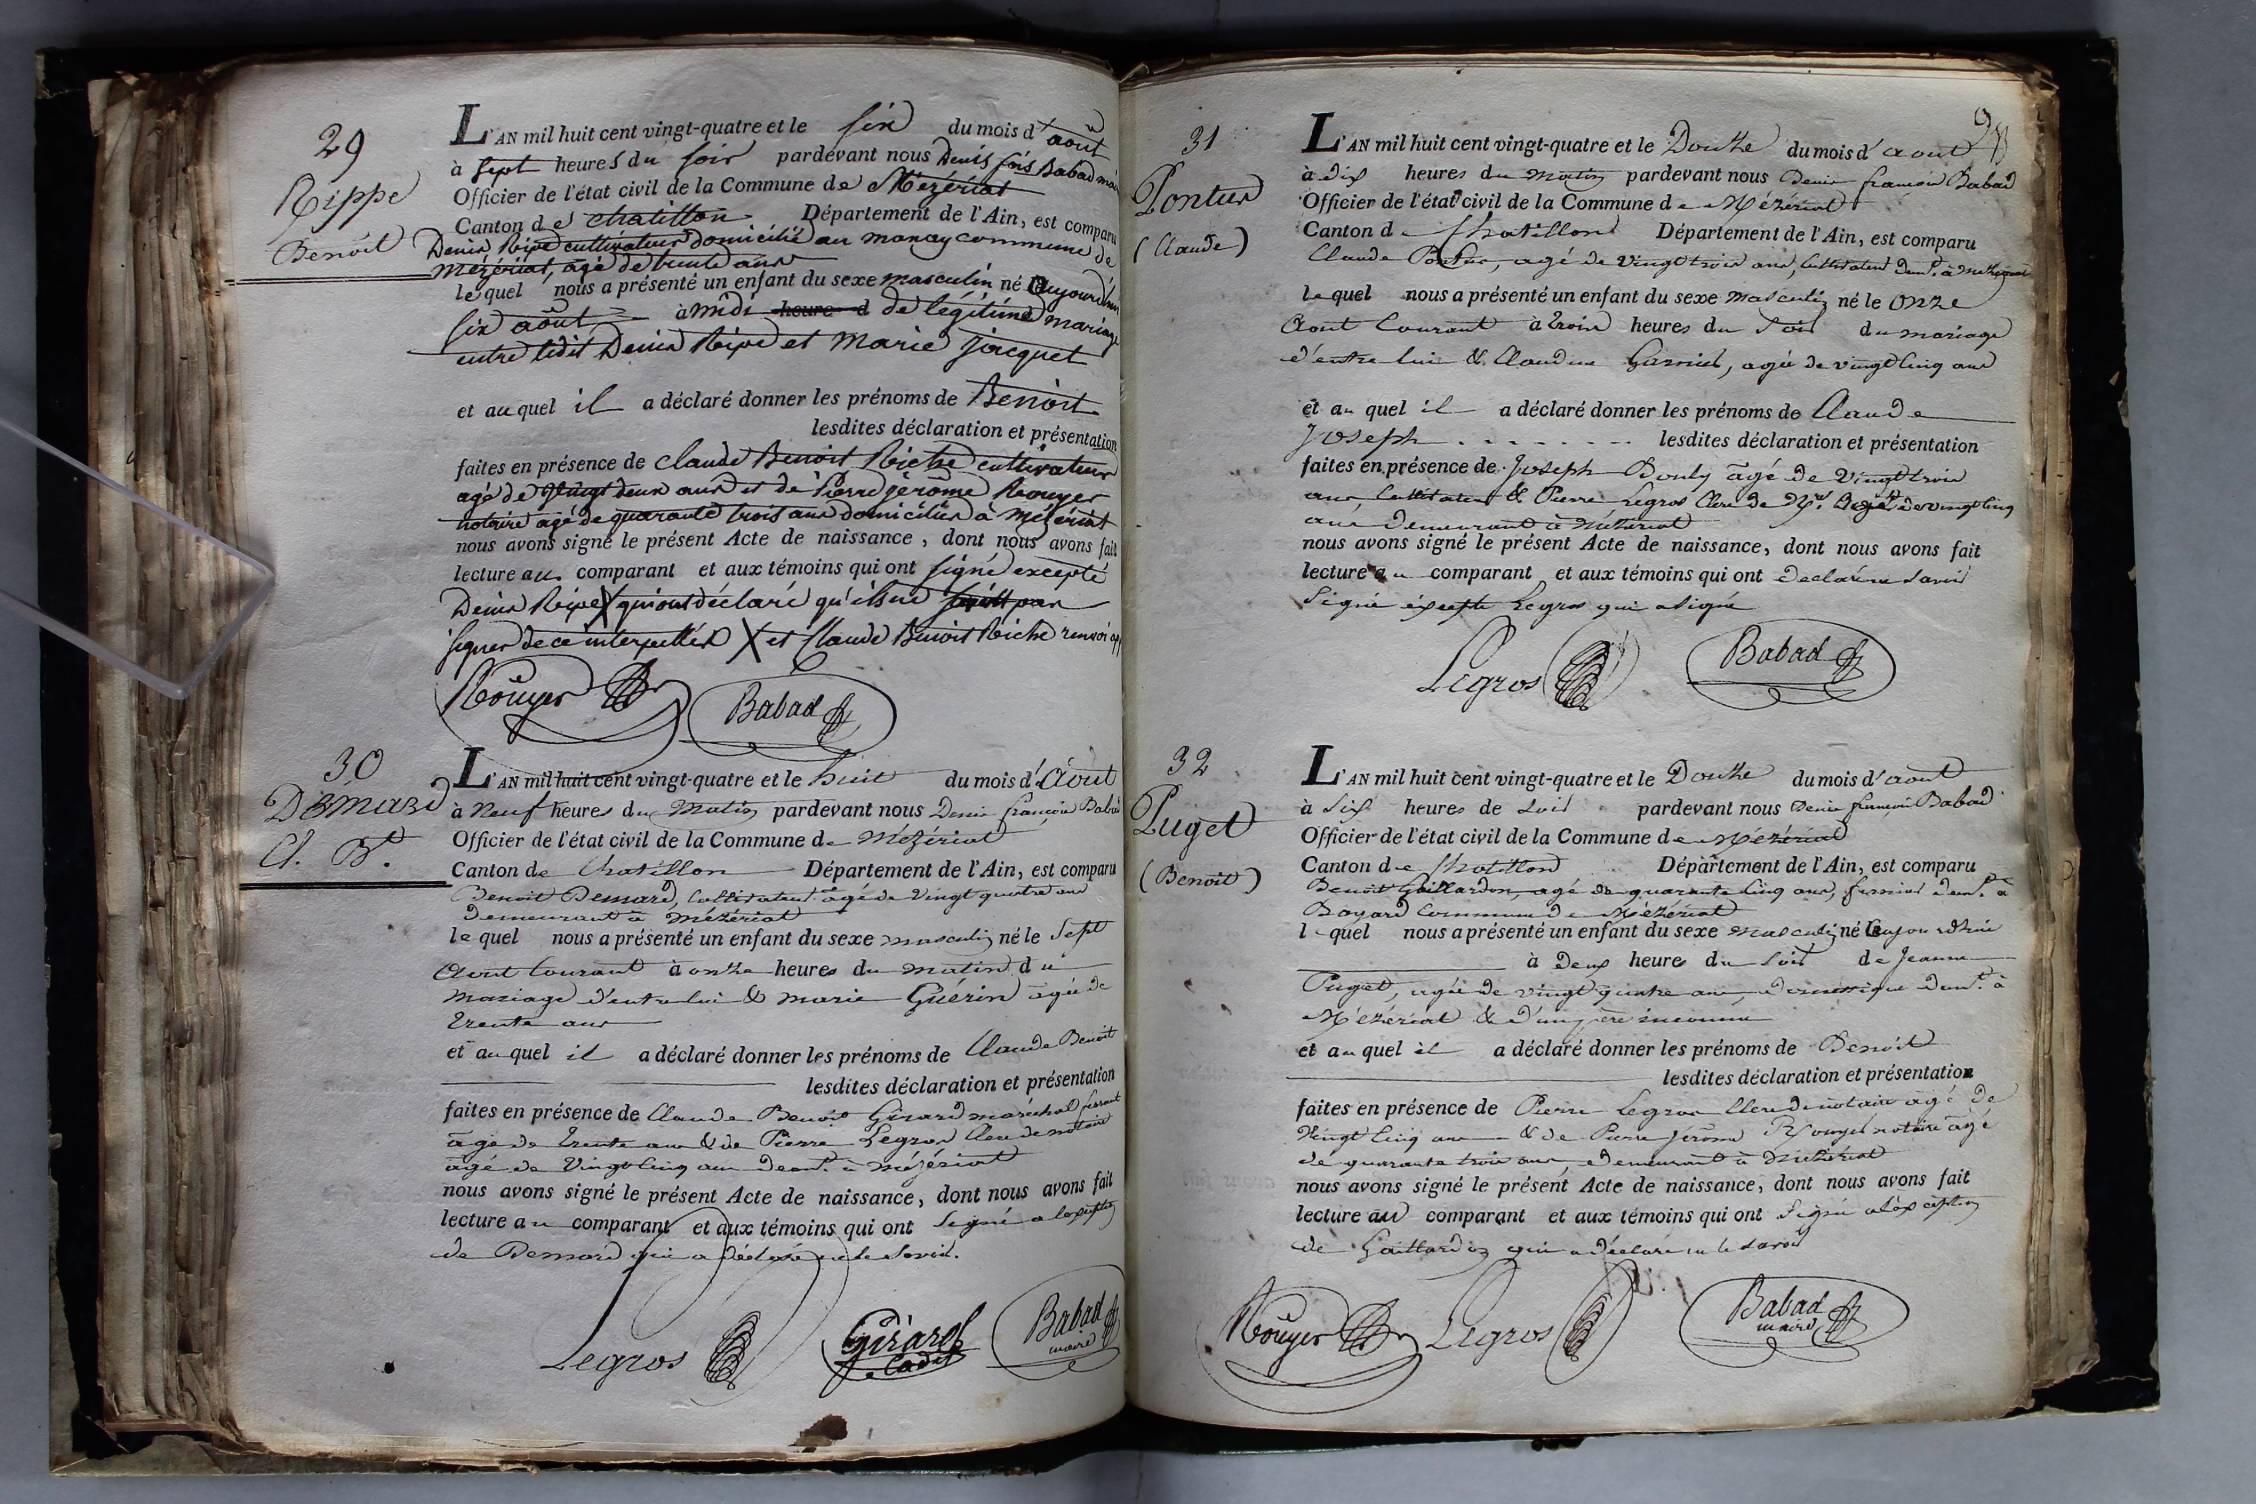 29
Rippe
Benoît
L'AN mil huit cent vingt-quatre et le six du mois d'août
à sept heures du soir pardevant nous Denis fois Babad maire
Officier de l'état civil de la Commune de Mézériat
Canton de chatillon Département de l'Ain, est comparu
Denis Ripe cultivateur domicilié au commune de
Mézériat, agé de trente ans
lequel nous a présenté un enfant du sexe masculin né aujourd'hui
six août à midi heure d de légitime mariage
entre ledit Denis Ripe et Marie Jacquet
et auquel il a déclaré donner les prénoms de Benoit
lesdites déclaration et présentation
faites en présence de Claude Benoit Riche cultivateur
agé de vingt deux ans et de Pierre jérôme Rouyer
notaire agé de quarante trois ans domiciliés à Mézériat
nous avons signé le présent Acte de naissance, dont nous avons fait
lecture au comparant et aux témoins qui ont signé excepté
Denis Ripe X qui ont déclaré qu'ils ne
signer de ce interpellés X et Claude Benoit Riche renvoi app
Rouyer Babad
30
Démard
Cl. Bt.
L'AN mil huit cent vingt-quatre et le huit du mois d'Aout
à Neuf heures du Matin pardevant nous Denis françois Babad
Officier de l'état civil de la Commune de Mézériat
Canton de Chatillon Département de l'Ain, est comparu
Benoit Demard, Cultivateur agé de vingt quatre ans
demeurant à Mézériat
lequel nous a présenté un enfant du sexe masculin né le Sept
Aout Courant à onze heures du matin du
mariage d'entre lui & marie Guérin agée de
trente ans
et au quel il a déclaré donner les prénoms de Claude Benoit
lesdites déclaration et présentation
faites en présence de Claude Benoit Girard maréchal ferrant
agé de trente ans & de Pierre Legros Clerc de notaire
agé de Vingt Cinq ans demt. à Mézériat
nous avons signé le présent Acte de naissance, dont nous avons fait
lecture au comparant et aux témoins qui ont Signé a lexception
de Demard qui a déclaré ne le Savoir.
Legros Girard Cadet Babad maire
31
Pontus
(Claude)
L'AN mil huit cent vingt-quatre et le Douze du mois d'aout
à dix heures du matin pardevant nous Denis françois Babad
Officier de l'état civil de la Commune de Mézériat
Canton de Chatillon Département de l'Ain, est comparu
Claude Pontus, agé de vingt trois ans, Cultivateur demt. à Mézériat
lequel nous a présenté un enfant du sexe masculin né le onze
Aout Courant à trois heures du Soir du mariage
d'entre lui & Claudine Garnier, agée de vingt Cinq ans
et au quel il a déclaré donner les prénoms de Claude
Joseph lesdites déclaration et présentation
faites en présence de Joseph Bouly agé de vingt trois
ans Cultivateur & Pierre Legros Clerc de agé de vingt cinq
ans demeurant à Mézériat
nous avons signé le présent Acte de naissance, dont nous avons fait
lecture au comparant et aux témoins qui ont declaré ne Savoir
Signé éxcepté Legros qui a signé
Legros Babad
32
Puget
(Benoit)
L'AN mil huit cent vingt-quatre et le Douze du mois d'aout
à six heures de soir pardevant nous Denis françois Babad
Officier de l'état civil de la Commune de Mézériat
Canton de Chatillon Département de l'Ain, est comparu
Benoit Gaillardon, agé de quarante Cinq ans, fermier demt. à
Bayard Commune de Mézériat
lequel nous a présenté un enfant du sexe masculin né aujourdhui
à deux heures du soir de Jeanne
Puget, agée de vingt quatre ans, domestique demt. à
Mézériat & d'un père inconnu
et au quel il a déclaré donner les prénoms de Benoit
lesdites déclaration et présentation
faites en présence de Pierre Legros Clerc de notaire agé de
vingt Cinq ans & de Pierre Jérôme Rouyer notaire agé
de quarante trois ans, demeurant à Mézériat
nous avons signé le présent Acte de naissance, dont nous avons fait
lecture au comparant et aux témoins qui ont Signé a léxception
de Gaillardon qui a déclaré ne le savoir
Rouyer Legros Babad maire